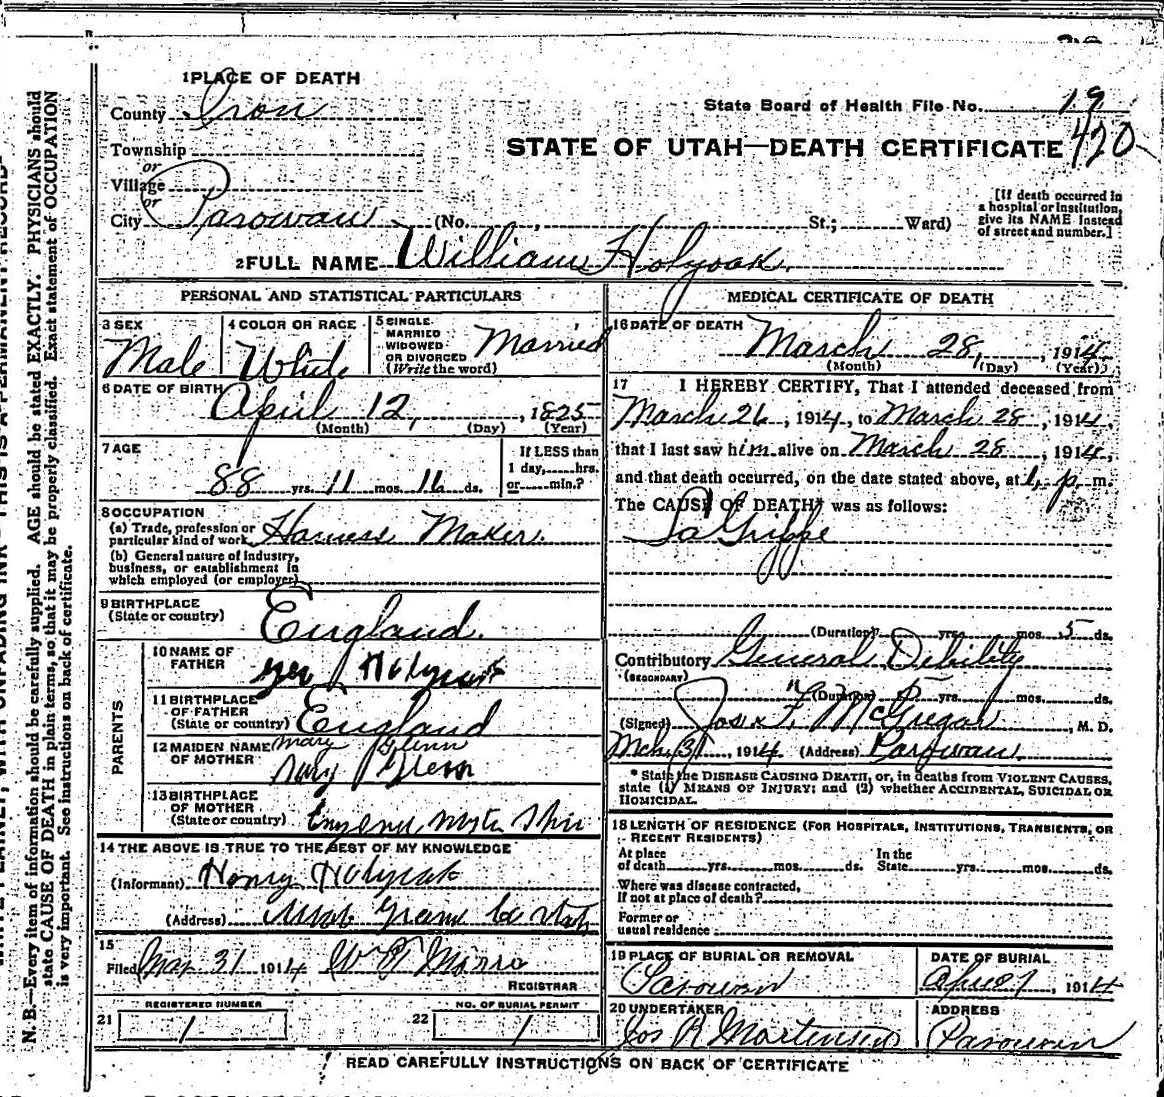 1 PLACE OF DEATH
County Iron
State Board of Health File No. 19
420
Township
or
Village
or
City Parowan (No. , St.; Ward)
STATE OF UTAH—DEATH CERTIFICATE
[If death occurred in
a hospital or institution,
give its NAME instead
of street and number.]
2 FULL NAME William Holyoak.
PERSONAL AND STATISTICAL PARTICULARS
3 SEX
Male
4 COLOR OR RACE
White
5 SINGLE
MARRIED
WIDOWED
OR DIVORCED
(Write the word)
Married
6 DATE OF BIRTH
April 12, , 1825
(Month) (Day) (Year)
7 AGE
88 yrs. 11 mos. 16 ds.
If LESS than
1 day, hrs.
or min.?
8 OCCUPATION
(a) Trade, profession or
particular kind of work Harness Maker.
(b) General nature of industry,
business, or establishment in
which employed (or employer)
9 BIRTHPLACE
(State or country) England.
PARENTS
10 NAME OF
FATHER
Holyoak
11 BIRTHPLACE
OF FATHER
(State or country) England
12 MAIDEN NAME
OF MOTHER
Mary Glenn
Mary Glenn
13 BIRTHPLACE
OF MOTHER
(State or country)
14 THE ABOVE IS TRUE TO THE BEST OF MY KNOWLEDGE
(Informant) Henry Holyoak
(Address) Grand Co Utah
15
Filed Mar 31 1914
REGISTRAR
REGISTERED NUMBER
21 1
NO. OF BURIAL PERMIT
22 1
MEDICAL CERTIFICATE OF DEATH
16 DATE OF DEATH
March 28, , 1914
(Month) (Day) (Year)
17 I HEREBY CERTIFY, That I attended deceased from
March 26 , 1914, to March 28 , 1914,
that I last saw him alive on March 28 , 1914,
and that death occurred, on the date stated above, at 1, p. m.
The CAUSE OF DEATH* was as follows:
La Grippe
(Duration) yrs. mos. 5 ds.
Contributory General Debility
(SECONDARY)
(Duration) 5 yrs. mos. ds.
(Signed) F. McGregor , M. D.
Mch 31 1914 (Address) Parowan.
* State the DISEASE CAUSING DEATH, or, in deaths from VIOLENT CAUSES,
state (1) MEANS OF INJURY; and (2) whether ACCIDENTAL, SUICIDAL OR
HOMICIDAL.
18 LENGTH OF RESIDENCE (FOR HOSPITALS, INSTITUTIONS, TRANSIENTS, OR
RECENT RESIDENTS)
At place
of death yrs. mos. ds. In the
State yrs. mos. ds.
Where was disease contracted,
If not at place of death?
Former or
usual residence
19 PLACE OF BURIAL OR REMOVAL
Parowan
DATE OF BURIAL
April 1 , 1914
20 UNDERTAKER
Jos R Mortensen
ADDRESS
Parowan
READ CAREFULLY INSTRUCTIONS ON BACK OF CERTIFICATE
N. B.—Every item of information should be carefully supplied. AGE should be stated EXACTLY. PHYSICIANS should
state CAUSE OF DEATH in plain terms, so that it may be properly classified. Exact statement of OCCUPATION
is very important. See instructions on back of certificate.